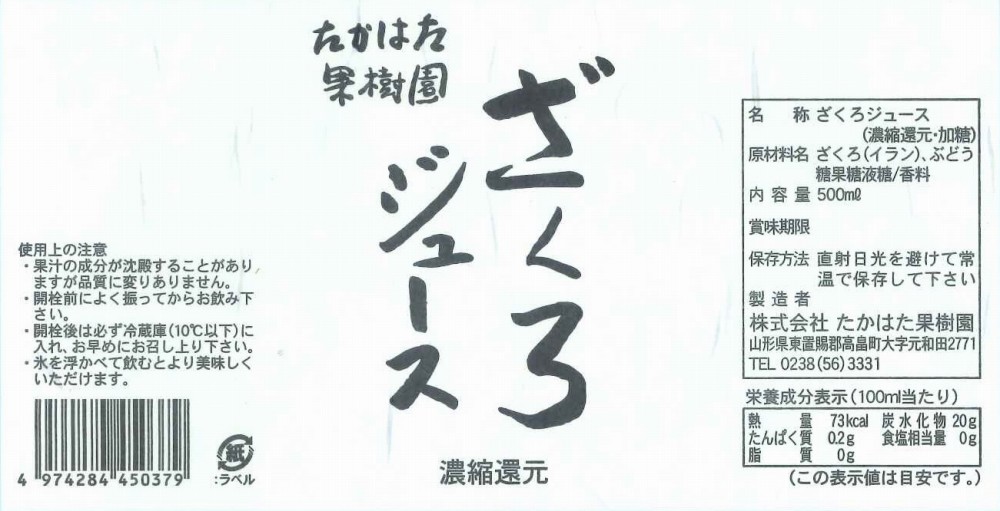 たかはた
果樹園
ざくろ
ジュース
濃縮還元
使用上の注意
・果汁の成分が沈殿することがあり
ますが品質に変りありません。
・開栓前によく振ってからお飲み下
さい。
・開栓後は必ず冷蔵庫(10℃以下)に
入れ、お早めにお召し上り下さい。
・氷を浮かべて飲むとより美味しく
いただけます。
4 974284 450379
紙
:ラベル
名称 ざくろジュース
(濃縮還元・加糖)
原材料名 ざくろ(イラン)、ぶどう
糖果糖液糖/香料
内容量 500mℓ
賞味期限
保存方法 直射日光を避けて常
温で保存して下さい
製造者
株式会社 たかはた果樹園
山形県東置賜郡高畠町大字元和田2771
TEL 0238(56)3331
栄養成分表示(100ml当たり)
熱量 73kcal 炭水化物 20g
たんぱく質 0.2g 食塩相当量 0g
脂質 0g
(この表示値は目安です。)